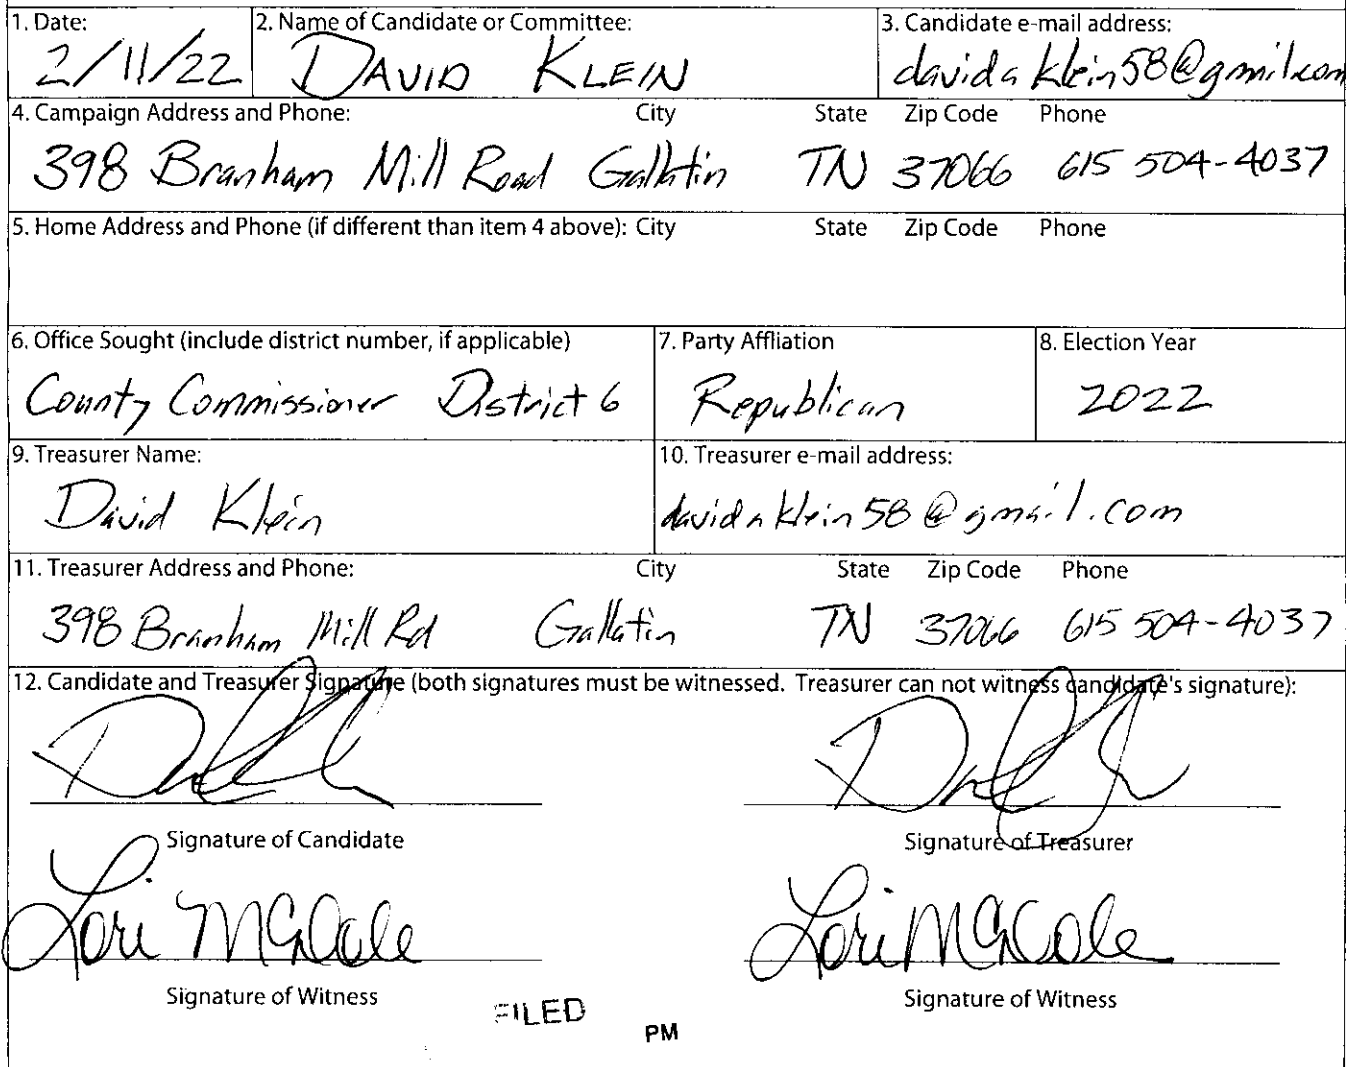 1. Date: 2. Name of Candidate or Committee: 3. Candidate e-mail address:
2/11/22 DAVID KLEIN davidaklein58@gmil.com
4. Campaign Address and Phone: City State Zip Code Phone
398 Branham Mill Road Gallatin TN 37066 615 504-4037
5. Home Address and Phone (if different than item 4 above): City State Zip Code Phone
6. Office Sought (include district number, if applicable) 7. Party Affliation 8. Election Year
County Commissioner District 6 Republican 2022
9. Treasurer Name: 10. Treasurer e-mail address:
David Klein davidaklein58@gmail.com
11. Treasurer Address and Phone: City State Zip Code Phone
398 Branham Mill Rd Gallatin TN 37066 615 504-4037
12. Candidate and Treasurer Signature (both signatures must be witnessed. Treasurer can not witness candidate's signature):
Signature of Candidate Signature of Treasurer
Lori Lori
Signature of Witness Signature of Witness
FILED
PM